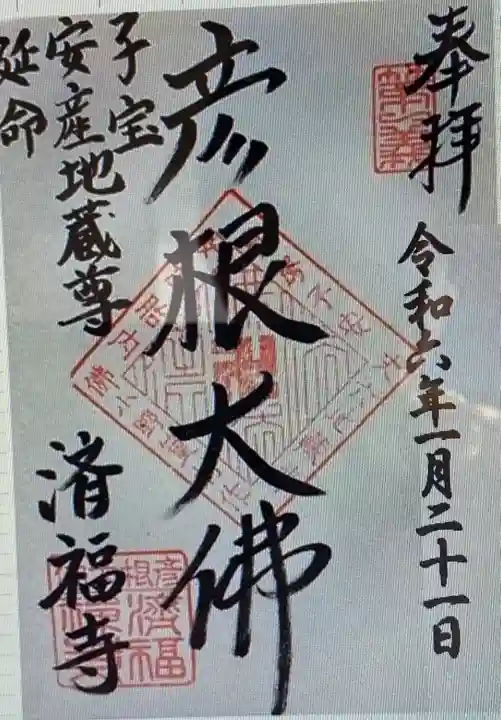 奉拝
令和六年一月二十一日
彦根大佛
子宝
安産地蔵尊
延命
済福寺
彦根
済福